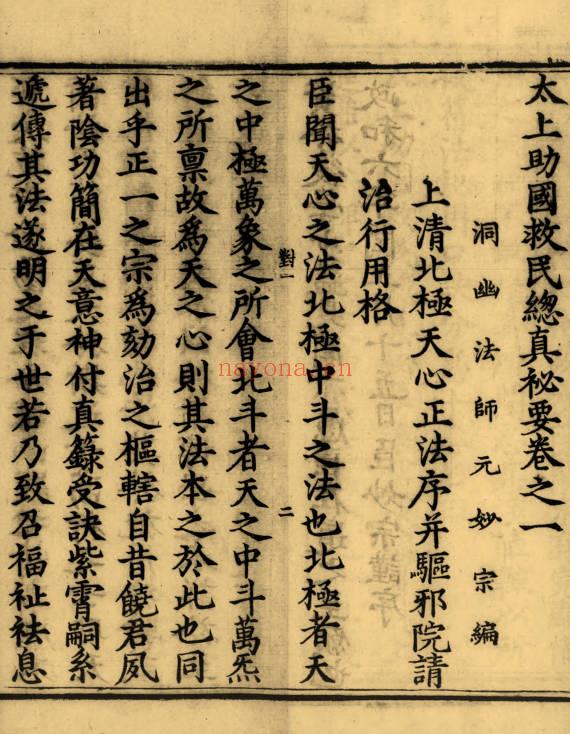 太上助國救民總真祕要卷之一
洞幽法師元妙宗編
上清北極天心正法序并驅邪院請
治行用格
臣聞天心之法北極中斗之法也北極者天
對一
二
之中極萬象之所會北斗者天之中斗萬炁
之所禀故為天之心則其法本之於此也同
出乎正一之宗為劾治之樞轄自昔饒君夙
著陰功簡在天意神付真籙受訣紫霄嗣系
遞傳其法遂明之于世若乃致召福祉祛息
nayona.cn
政和六
十五日臣妙宗謹序